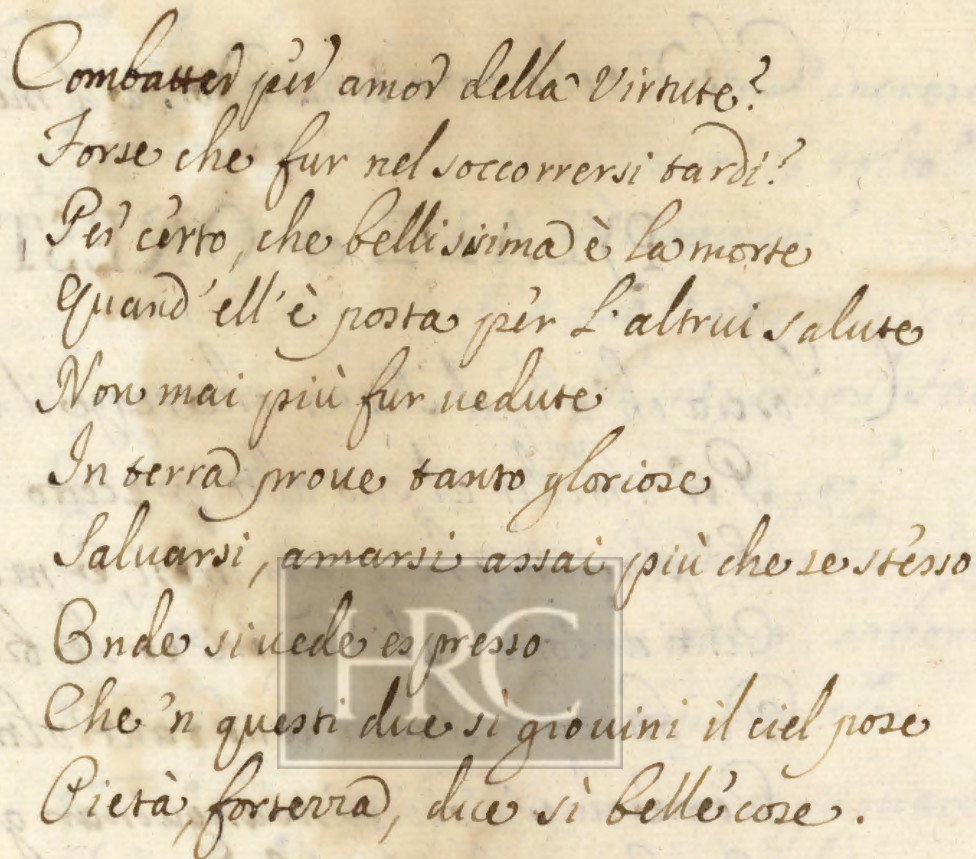 Combatter per amor della Virtute?
Forse che fur nel soccorrersi tardi?
Per certo, che bellissima è la morte
Quand'ell'è posta per l'altrui salute
Non mai più fur uedute
In terra proue tanto gloriose
Saluarsi, amarsi assai più che se stesso
Onde si uede espresso
Che 'n questi due sì giouini il ciel pose
Pietà, fortezza, due sì belle cose.
HRC